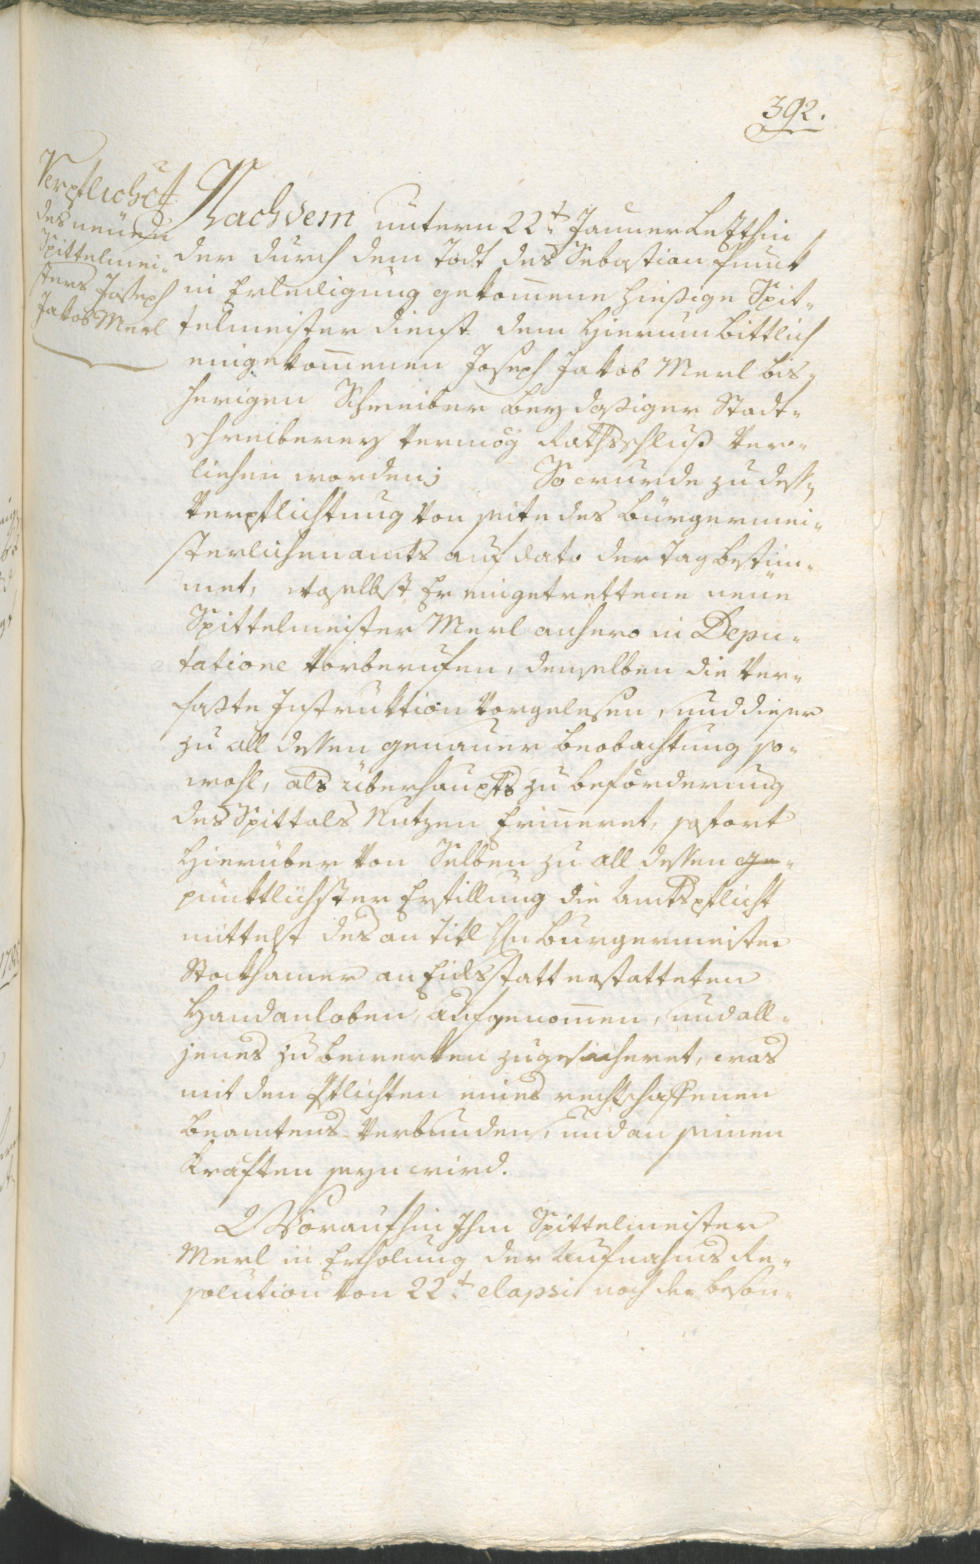 392.
Verpflicht
des neüen
Spittelmei-
sters Joseph
Jakob Merl
Nachdem untern 22t. Jänner letzthin
der durch dem Todt des Sebastian
in Erledigung gekom̄ene hiesige Spit-
telmeister dienst dem hierum bittlich
eingekom̄enen Joseph Jakob Merl bis-
herigen Schreiber bey dasiger Stadt-
schreiberey vermög Rathsschluß ver-
liehen worden; So wurde zu dess-
Verpflichtung von seite des bürgermei-
sterlichen amts auf dato der Tag bestim-
met, woselbst Er eingetrettene neüe
Spittelmeister Merl anhero in Depu-
tatione vorberufen, denselben die ver-
faßte Instruktion vorgelesen, und dieser
zu all dessen genauer beobachtung so-
wohl, als überhaupts zu beförderung
des Spittals Nutzen Erinneret, sofort
hierüber von Selben zu all dessen ge-
pünktlichster Erfüllung die Amtspflicht
mittelst des an titl Hn burgermeister
Stockhamer an Eidsstatt erstatteten
Handanloben, aufgenom̄en, und all-
jenes zu bewerken zugesicheret, was
mit den Pflichten eines rechtschaffenen
beamtens verbunden, und an seinen
kräften seyn wird.
Woraufhin Ihm Spittelmeister
Merl in Erholung der Aufnahms Re-
solution von 22t. elapsi noch der beson-